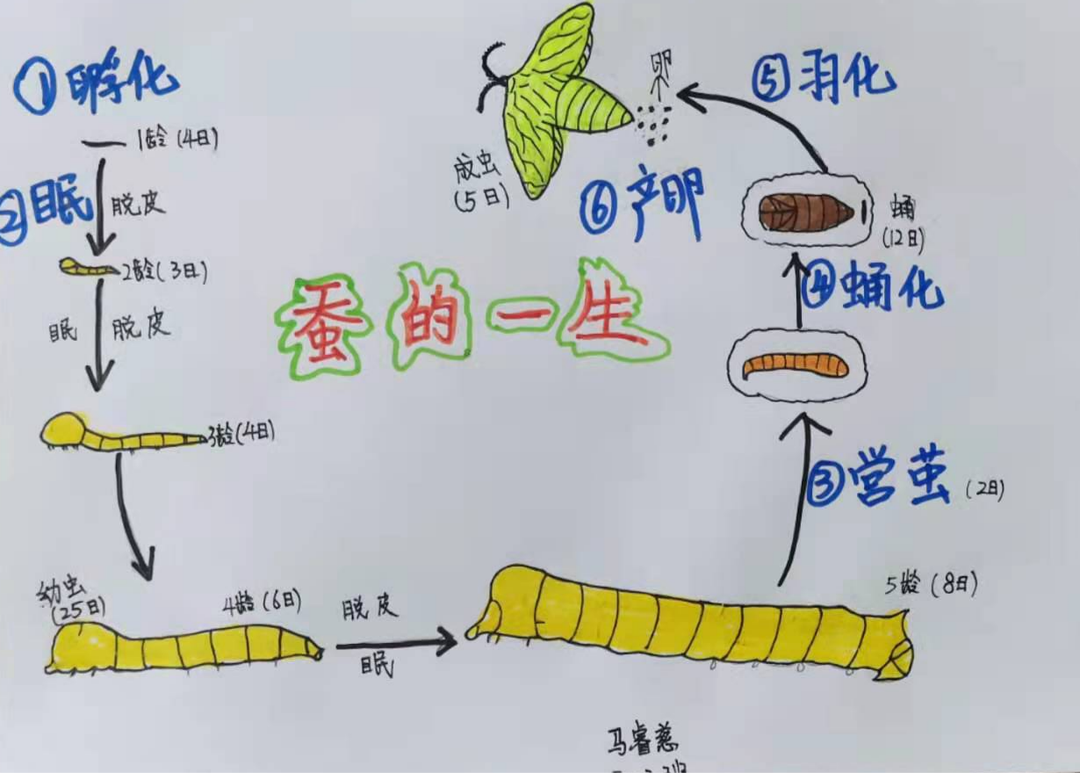 ①孵化
1龄(4日)
②眠
脱皮
2龄(3日)
眠
脱皮
3龄(4日)
幼虫
(25日)
4龄(6日)
脱皮
眠
5龄(8日)
③营茧
(2日)
④蛹化
蛹
(12日)
⑤羽化
卵
成虫
(5日)
⑥产卵
蚕的一生
马睿慈